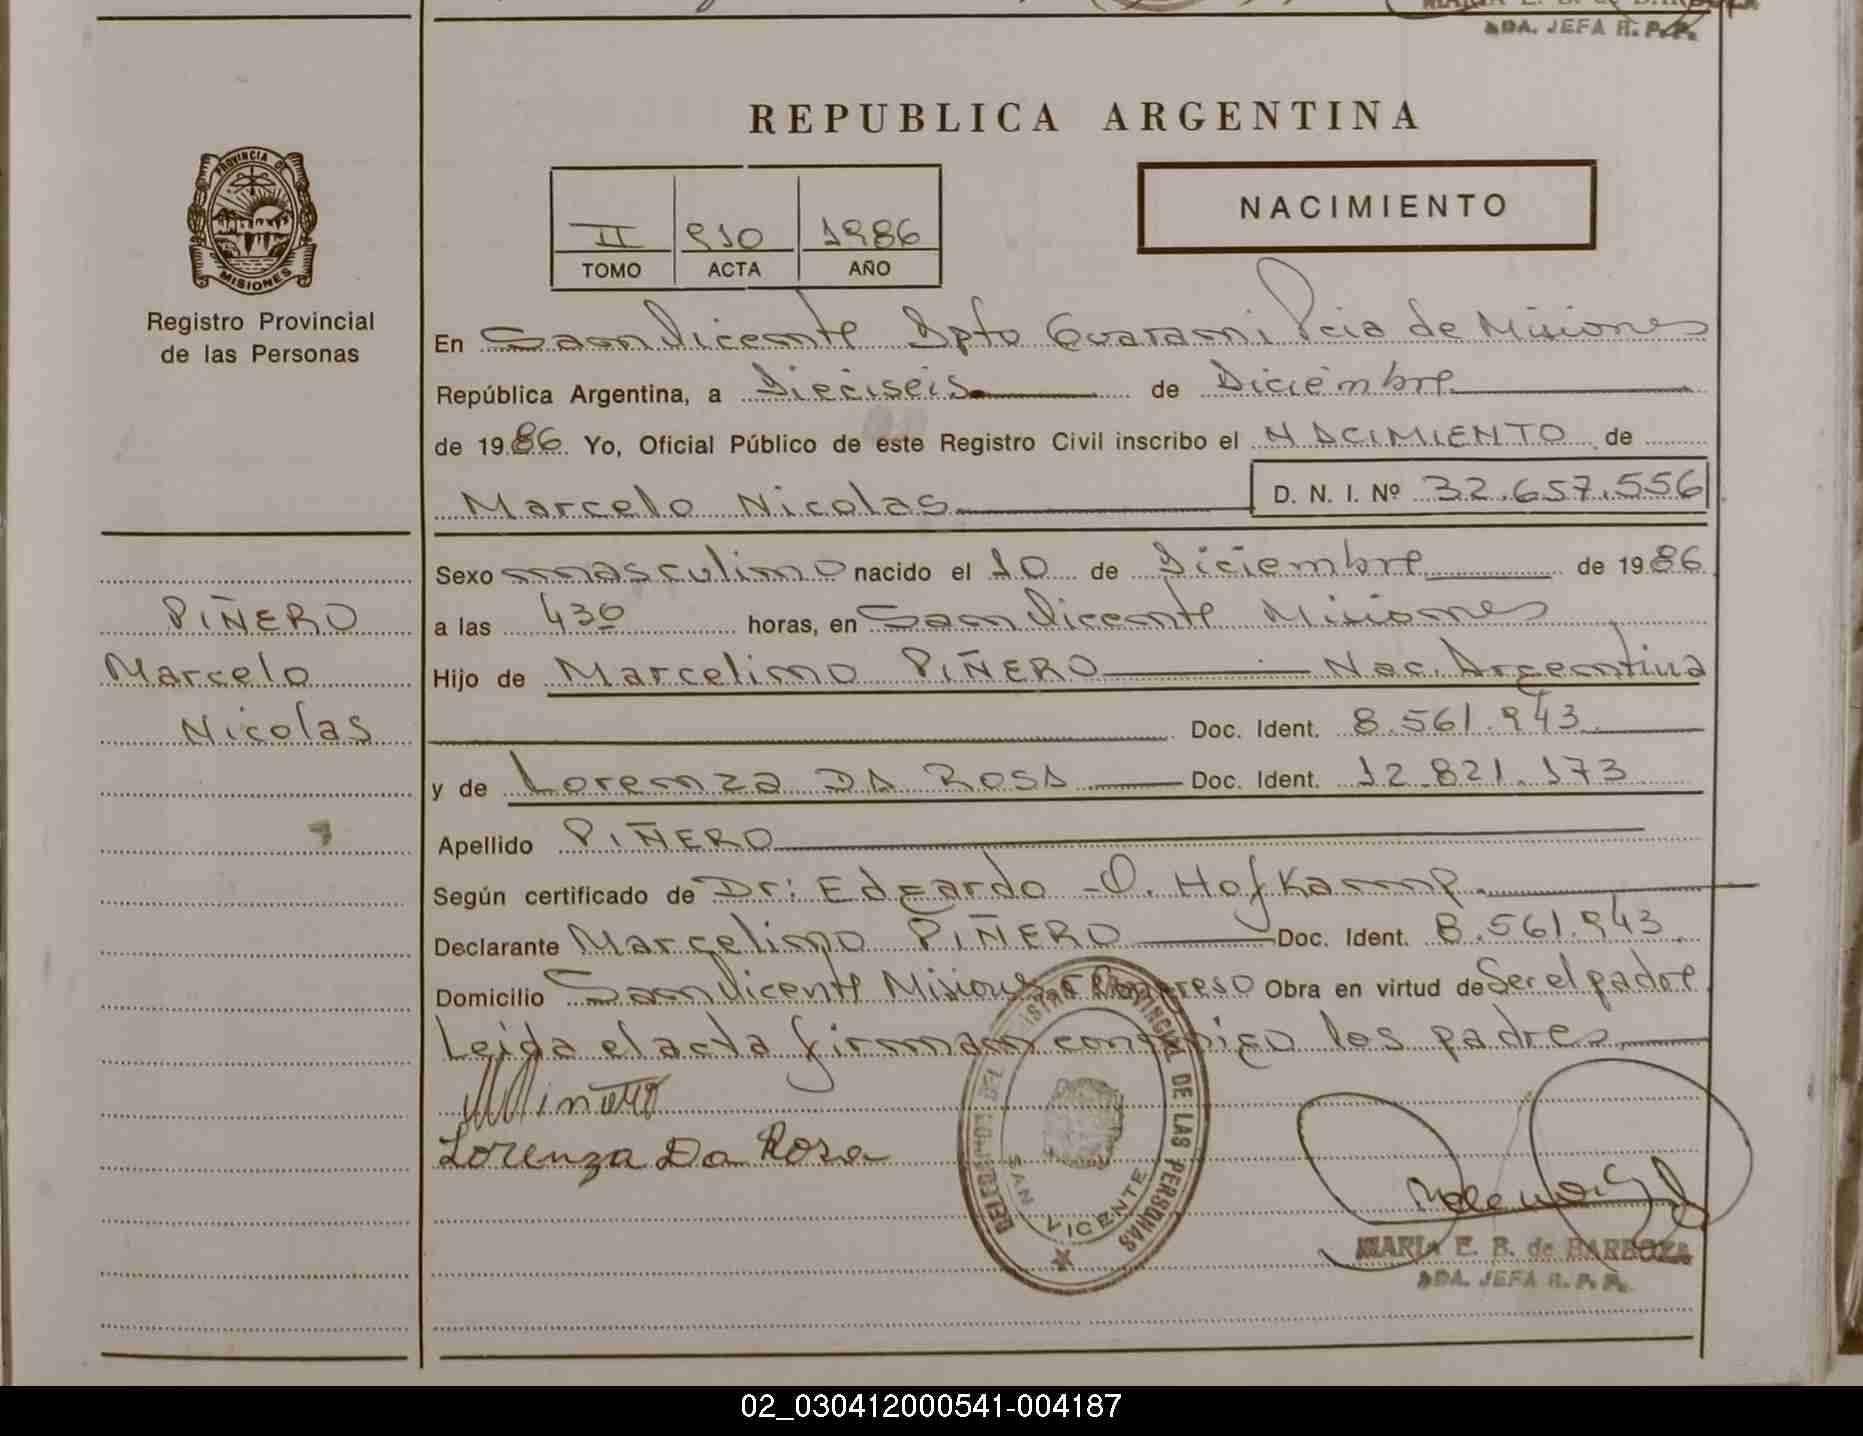 ADA. JEFA R. P. P.
REPUBLICA ARGENTINA
PROVINCIA DE MISIONES
Registro Provincial
de las Personas
II 910 1986
TOMO ACTA AÑO
NACIMIENTO
En San Vicente Dpto Guarani Pcia de Misiones
República Argentina, a Dieciseis de Diciembre
de 1986 Yo, Oficial Público de este Registro Civil inscribo el NACIMIENTO de
Marcelo Nicolas D. N. I. Nº 32.657.556
Sexo masculino nacido el 10 de Diciembre de 1986
a las 430 horas, en San Vicente Misiones
Hijo de Marcelino PIÑERO Nac. Argentina
Doc. Ident. 8.561.943
y de Lorenza DA ROSA Doc. Ident. 12.821.173
Apellido PIÑERO
Según certificado de Dr: Edgardo O. Hofkamp
Declarante Marcelino PIÑERO Doc. Ident. 8.561.943
Domicilio San Vicente Misiones Obra en virtud de Ser el padre
Leida el acta firman conmigo los padres
PIÑERO
Marcelo
Nicolas
Lorenza Da Rosa
REGISTRO PROVINCIAL DE LAS PERSONAS
SAN VICENTE
MARIA E. B. de BARBOZA
ADA. JEFA R. P. P.
02_030412000541-004187